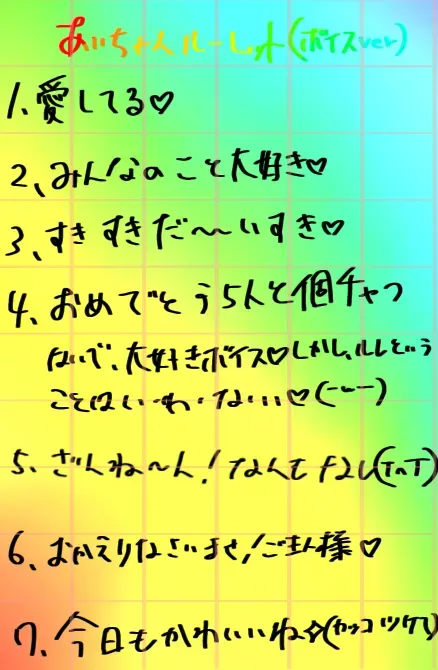 あいちゃんルーレット(ボイスver)
1、愛してる♡
2、みんなのこと大好き♡
3、すきすきだ〜いすき♡
4、おめでとう5人と個チャつ
ないで、大好きボイス♡しかし、ルルという
ことはい・わ・ない♡(ーーー)
5、ざんね〜ん!なんもナシ(TnT)
6、おかえりなさいませ!ご主人様♡
7、今日もかわいいね☆(カッコツケ)